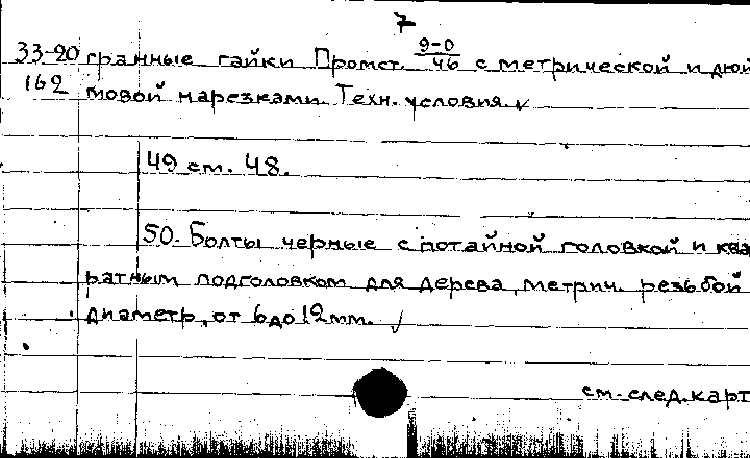 7
33-20 гранные гайки Промст. 9-0/46 с метрической и дюй
162 мовой нарезками. Техн. условия. ✓
49 см. 48.
50. Болты черные с потайной головкой и квад
ратным подголовком для дерева, метрич. резьбой
диаметр. от 6 до 12 мм. ✓
см. след. карт